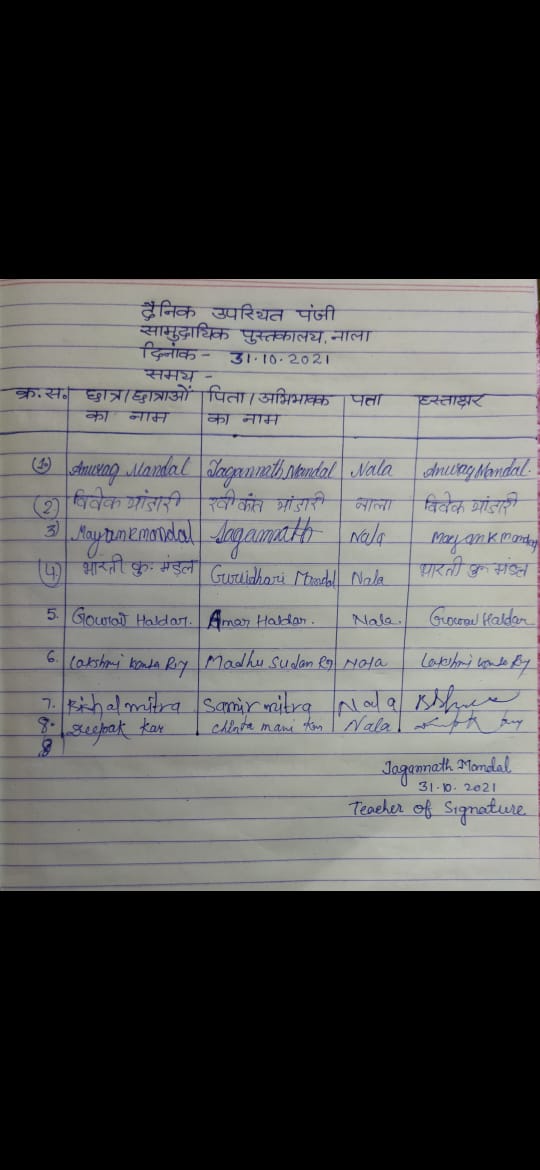 दैनिक उपस्थित पंजी
सामुदायिक पुस्तकालय, नाला
दिनांक - 31.10.2021
समय -
क्र.स. छात्र/छात्राओं का नाम पिता/अभिभावक का नाम पता हस्ताक्षर
(1) Anurag Mandal Jagannath Mandal Nala Anurag Mandal.
(2) विवेक भंडारी रवीकांत भंडारी नाला विवेक भंडारी
3) Mayank mandal Jagannath Nala Mayank mandal
(4) भारती कु. मंडल Guruldhari Mandal Nala भारती कु मंडल
5. Gourav Haldar. Amar Haldar. Nala. Gourav Haldar
6. Lakshmi Kanta Roy Madhu Sudan Roy Nala Lakshmi Kanta Roy
7. Bishal mitra Samir mitra Nala
8. Deepak kar mani kar Nala
8
Jagannath Mondal
31.10.2021
Teacher of Signature